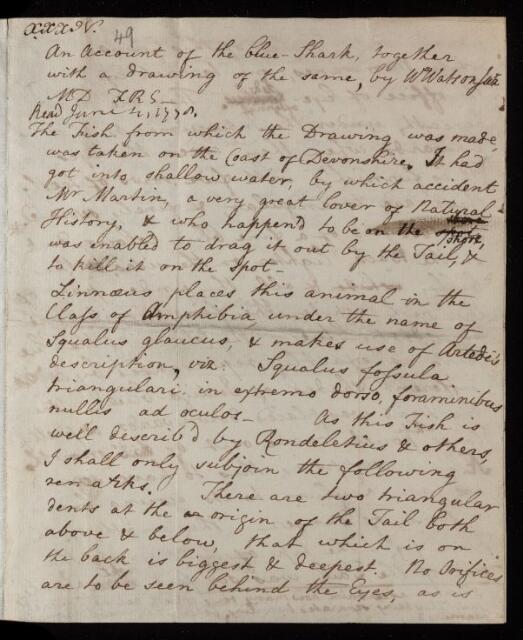 XXXIV.
49
An Account of the blue-Shark, together
with a drawing of the same, by Wm Watson Jun.
MD FRS_
Read June 4, 1778.
The Fish from which the Drawing was made,
was taken on the Coast of Devonshire. It had
got into shallow water, by which accident
Mr Martin, a very great lover of Natural
History, & who happen'd to be on the spot
shore,
was enabled to drag it out by the Tail, &
to kill it on the spot_
Linnæus places this animal in the
Class of Amphibia under the name of
Squalus glaucus, & makes use of Artedi's
description, viz. Squalus fossula
triangulari in extremo dorso, foraminibus
nullis ad oculos_ As this Fish is
well describ'd by Rondeletius & others,
I shall only subjoin the following
remarks. There are two triangular
dents at the origin of the Tail both
above & below, that which is on
the back is biggest & deepest. No Orifices
are to be seen behind the Eyes, as is